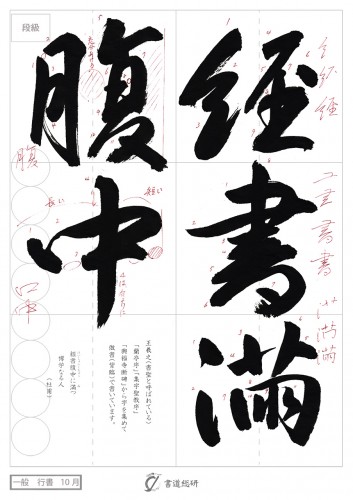 経書満
腹中
段級
長い
短い
王羲之(書聖と呼ばれている)
「蘭亭序」「集字聖教序」
「興福寺断碑」から字を集めて
倣書(背臨)で書いています。
経書腹中に満つ
博学なる人
(杜甫)
一般 行書 10月
書道総研